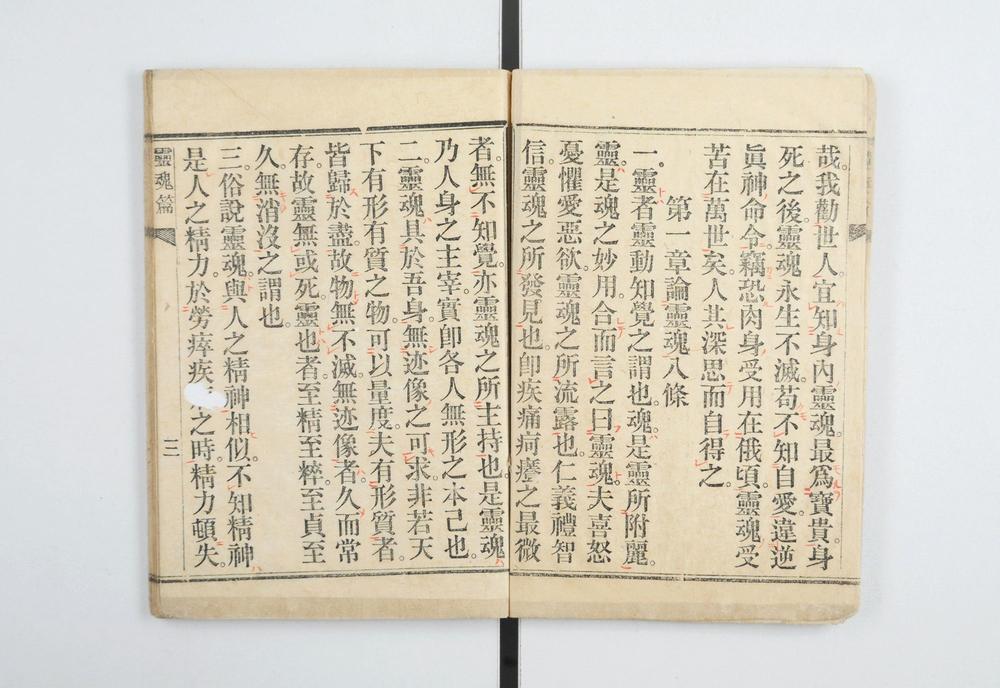 哉。我勸世人。宜知身內靈魂。最爲寶貴。身
死之後。靈魂永生不滅。苟不知自愛。違逆
眞神命令。竊恐肉身受用在俄頃。靈魂受
苦在萬世矣。人其深思而自得之。
第一章論靈魂八條
一。靈者靈動知覺之謂也。魂是靈所附麗。
靈是魂之妙用。合而言之曰靈魂。夫喜怒
憂懼愛惡欲。靈魂之所流露也。仁義禮智
信。靈魂之所發見也。卽疾痛疴癢之最微
者。無不知覺。亦靈魂之所主持也。是靈魂
乃人身之主宰。實卽各人無形之本己也。
二。靈魂具於吾身。無迹像之可求。非若天
下有形有質之物。可以量度。夫有形質者。
皆歸於盡。故物無不滅。無迹像者。久而常
存。故靈無或死。靈也者。至精至粹。至貞至
久。無消沒之謂也。
三。俗說靈魂。與人之精神相似。不知精神
是人之精力。於勞瘁疾之時。精力頓失。
靈魂篇
三